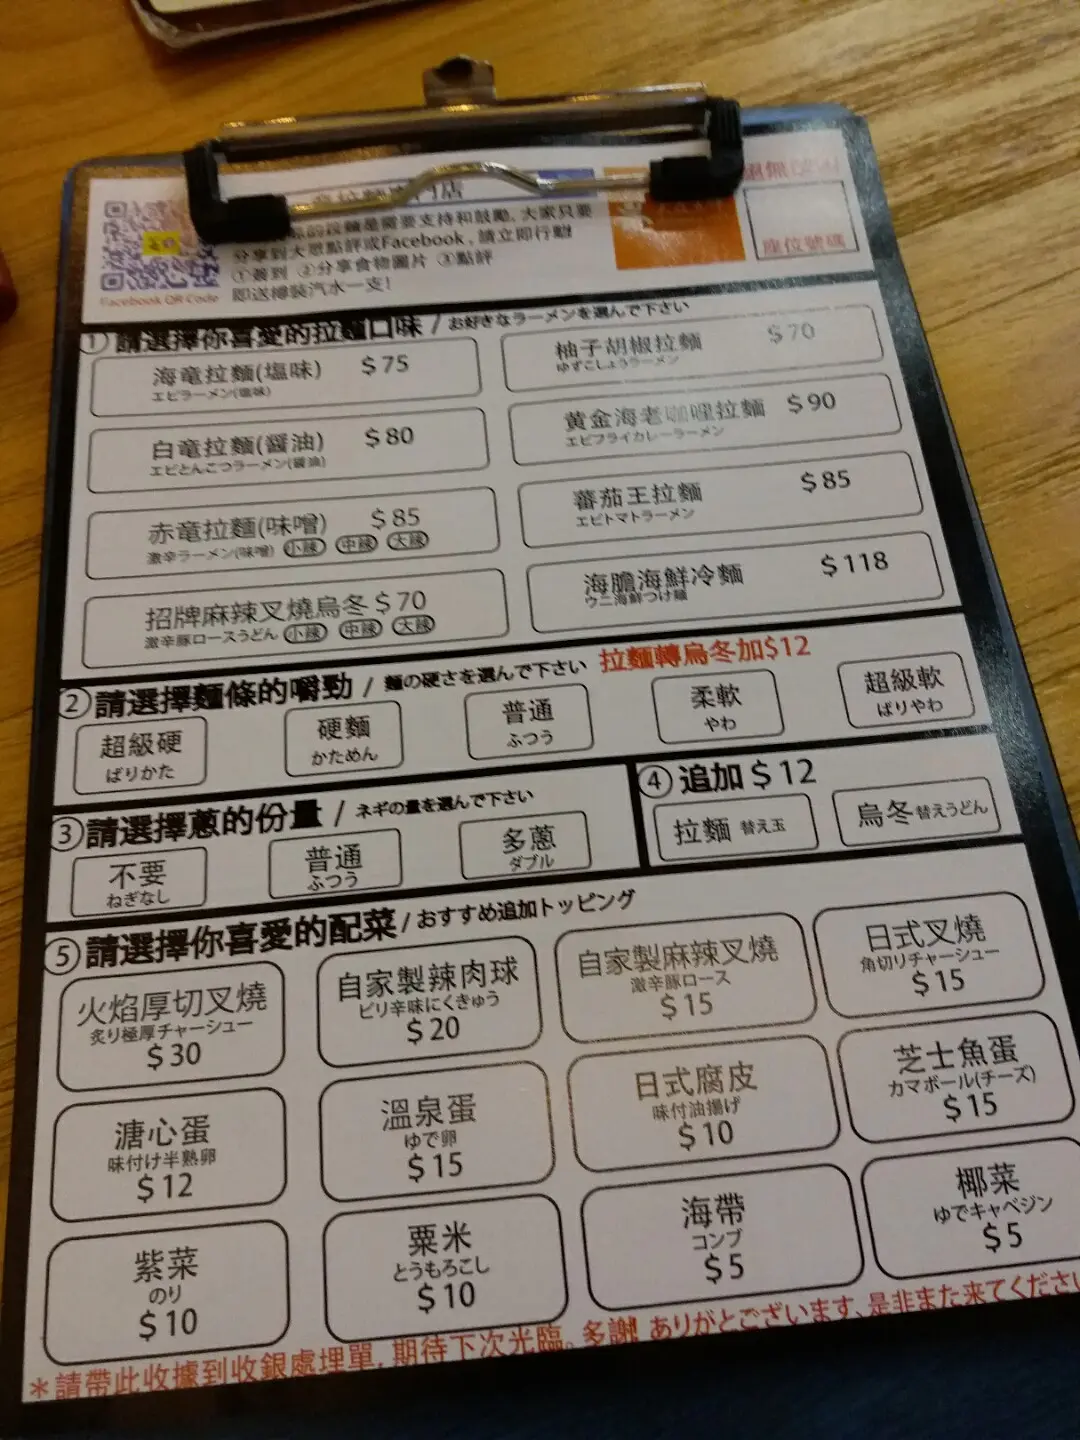 門店
的拉麵是需要支持和鼓勵，大家只要
分享到大眾點評或Facebook，請立即行動!
①簽到 ②分享食物圖片 ③點評
即送樽裝汽水一支!
Facebook QR Code
座位號碼
① 請選擇你喜愛的拉麵口味 / お好きなラーメンを選んで下さい
海竜拉麵(塩味) $75
エビラーメン(塩味)
柚子胡椒拉麵 $70
ゆずこしょうラーメン
白竜拉麵(醤油) $80
エビとんこつラーメン(醤油)
黄金海老咖哩拉麵 $90
エビフライカレーラーメン
赤竜拉麵(味噌) $85
激辛ラーメン(味噌) 小辣 中辣 大辣
蕃茄王拉麵 $85
エビトマトラーメン
招牌麻辣叉燒烏冬 $70
激辛豚ロースうどん 小辣 中辣 大辣
海膽海鮮冷麵 $118
ウニ海鮮つけ麺
② 請選擇麵條的嚼勁 / 麺の硬さを選んで下さい 拉麵轉烏冬加$12
超級硬
ばりかた
硬麵
かためん
普通
ふつう
柔軟
やわ
超級軟
ばりやわ
③ 請選擇蔥的份量 / ネギの量を選んで下さい
不要
ねぎなし
普通
ふつう
多蔥
ダブル
④ 追加 $12
拉麵 替え玉
烏冬 替えうどん
⑤ 請選擇你喜愛的配菜 / おすすめ追加トッピング
火焰厚切叉燒
炙り極厚チャーシュー
$30
自家製辣肉球
ピリ辛味にくきゅう
$20
自家製麻辣叉燒
激辛豚ロース
$15
日式叉燒
角切りチャーシュー
$15
溏心蛋
味付け半熟卵
$12
溫泉蛋
ゆで卵
$15
日式腐皮
味付油揚げ
$10
芝士魚蛋
カマボール(チーズ)
$15
紫菜
のり
$10
粟米
とうもろこし
$10
海帶
コンブ
$5
椰菜
ゆでキャベジン
$5
*請帶此收據到收銀處埋單，期待下次光臨。多謝! ありがとございます、是非また来てくださ